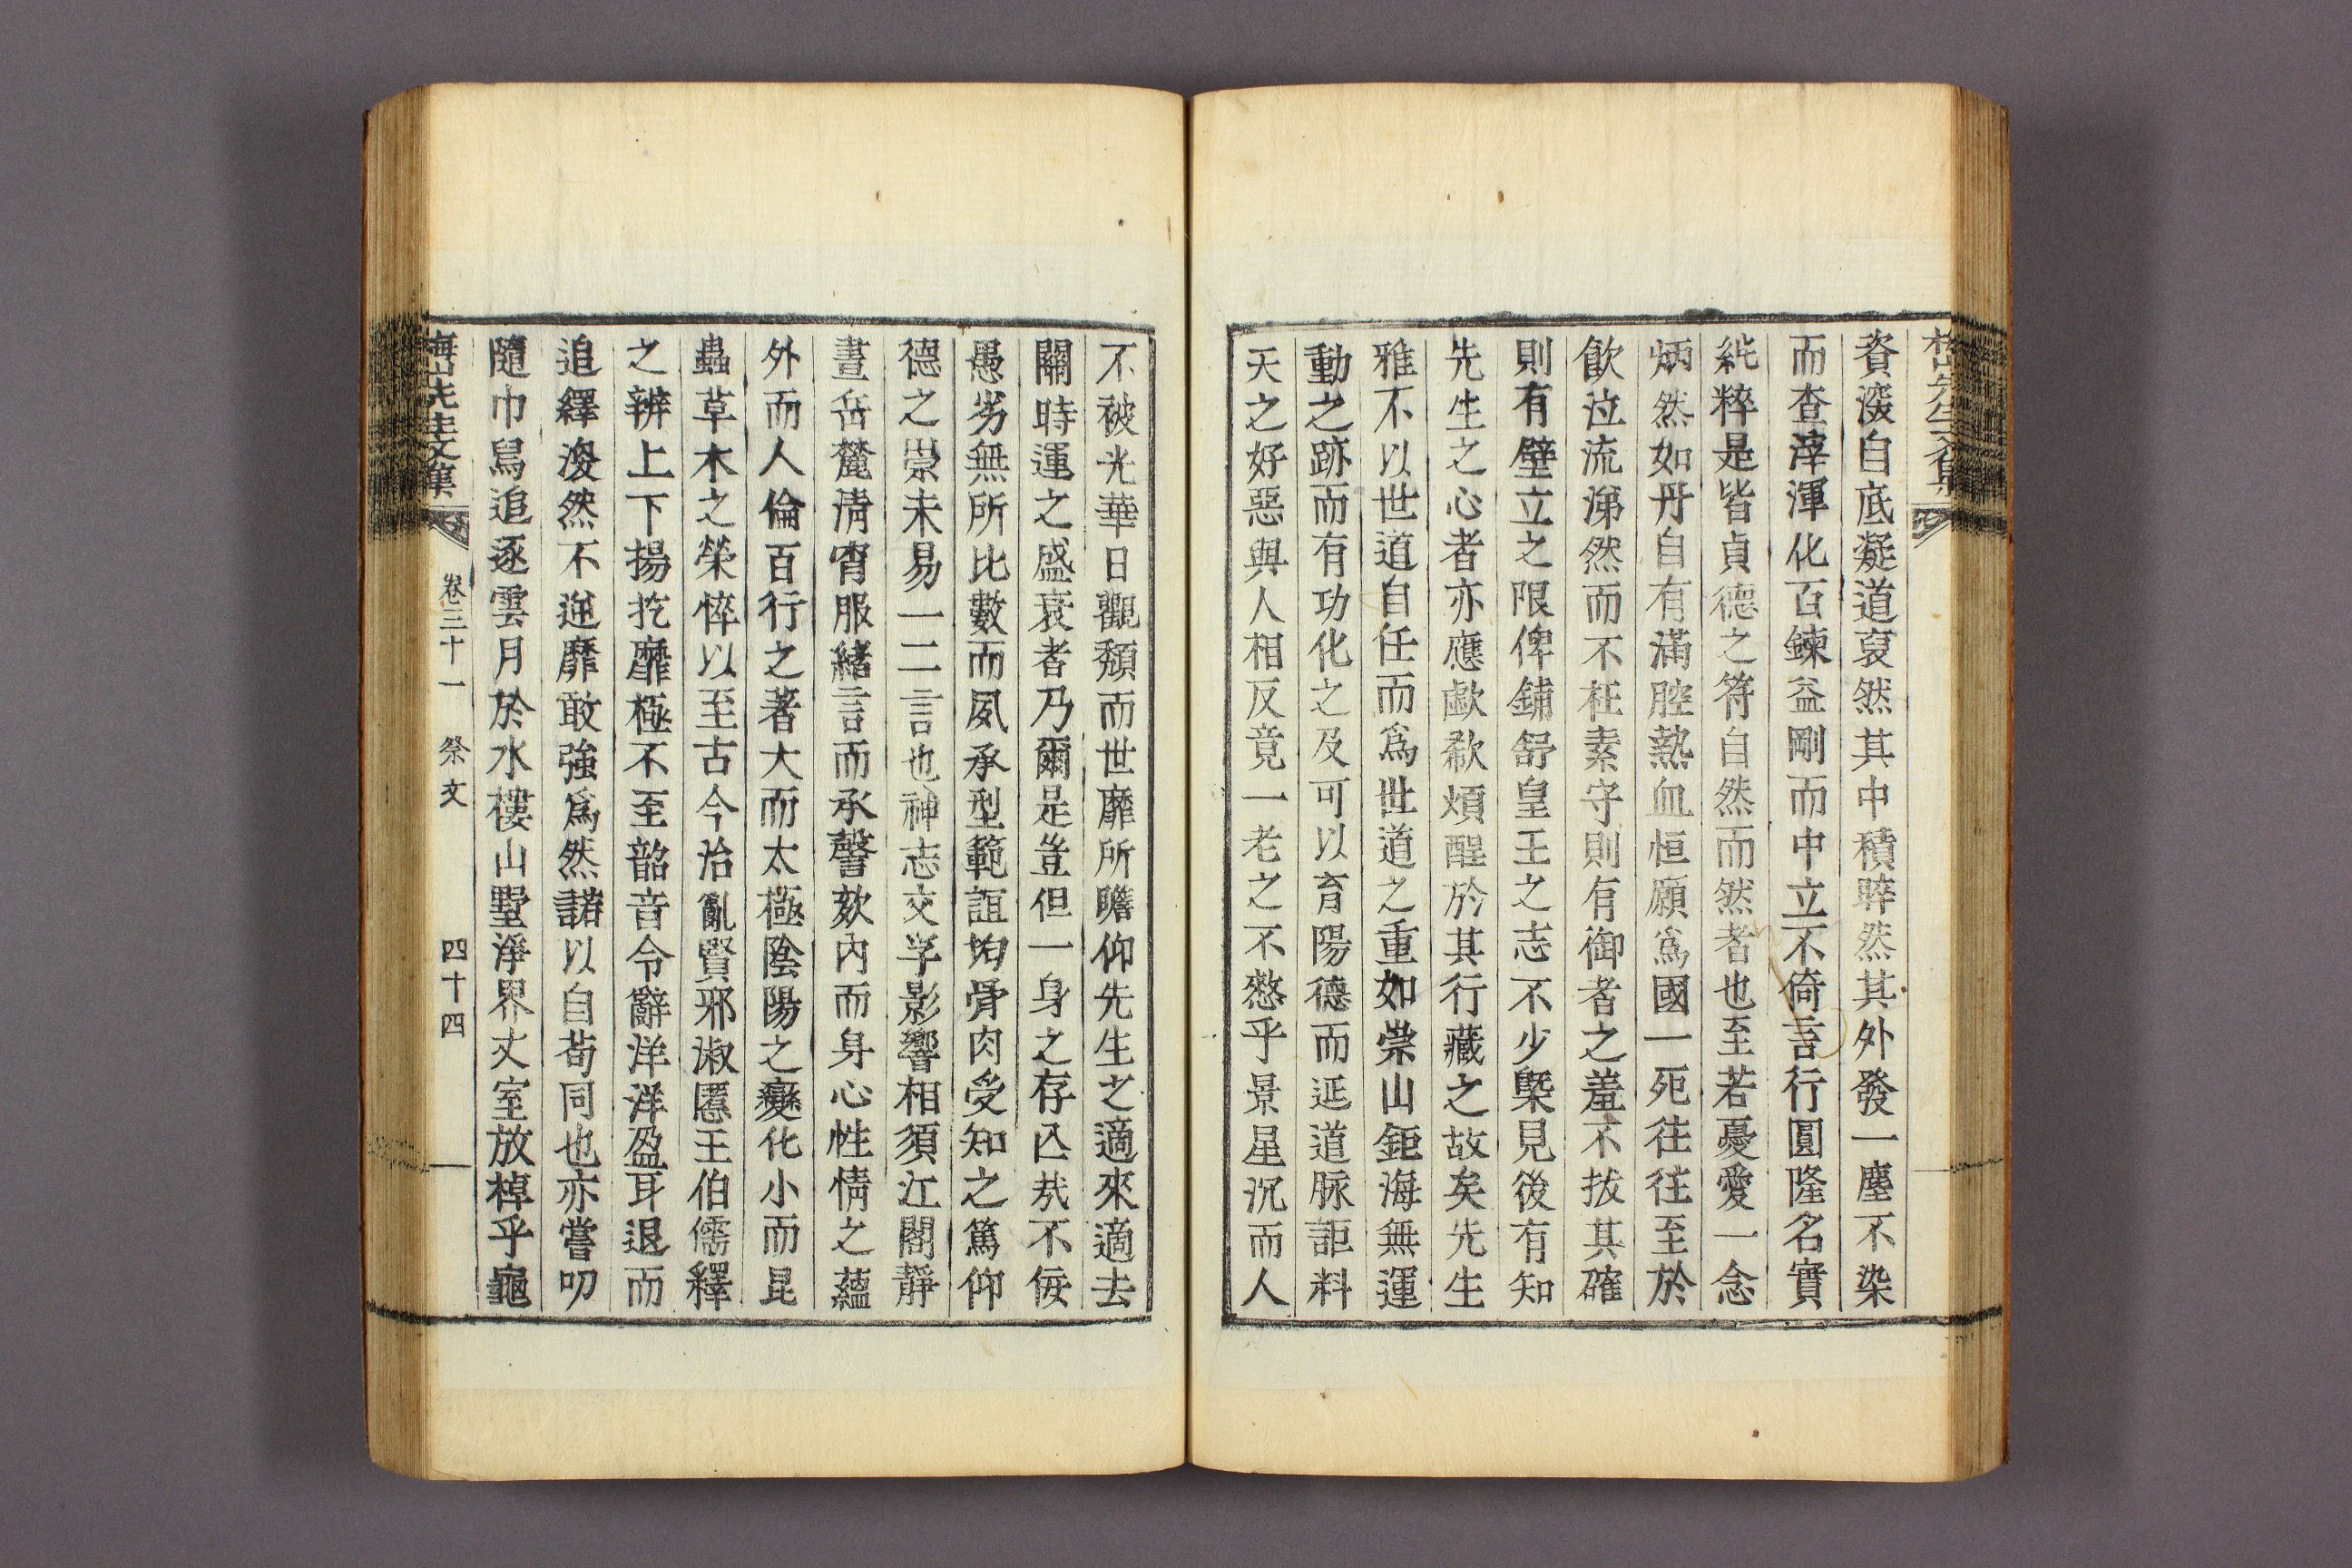 資深自底凝道裒然其中積睟然其外發一塵不染
而查滓渾化百鍊益剛而中立不倚言行圓隆名實
純粹是皆貞德之符自然而然者也至若憂愛一念
炳然如丹自有滿腔熱血恒願爲國一死往往至於
飮泣流涕然而不枉素守則有御者之羞不拔其確
則有壁立之限俾鋪舒皇王之志不少槩見後有知
先生之心者亦應歔欷煩酲於其行藏之故矣先生
雅不以世道自任而爲世道之重如崇山鉅海無運
動之跡而有功化之及可以育陽德而延道脉詎料
天之好惡與人相反竟一老之不憖乎景星沉而人
不被光華日觀頹而世靡所瞻仰先生之適來適去
關時運之盛衰者乃爾是豈但一身之存亾㢤不佞
愚劣無所比數而夙承型範誼均骨肉受知之篤仰
德之崇未易一二言也神志交孚影響相須江閣靜
晝岳麓淸宵服緖言而承謦欬內而身心性情之蘊
外而人倫百行之著大而太極陰陽之變化小而昆
蟲草木之榮悴以至古今治亂賢邪淑慝王伯儒釋
之辨上下揚扢靡極不至韶音令辭洋洋盈耳退而
追繹渙然不逆靡敢強爲然諾以自苟同也亦嘗叨
隨巾舃追逐雲月於水樓山墅淨界丈室放棹乎龜
梅山先生文集 卷三十一 祭文 四十四